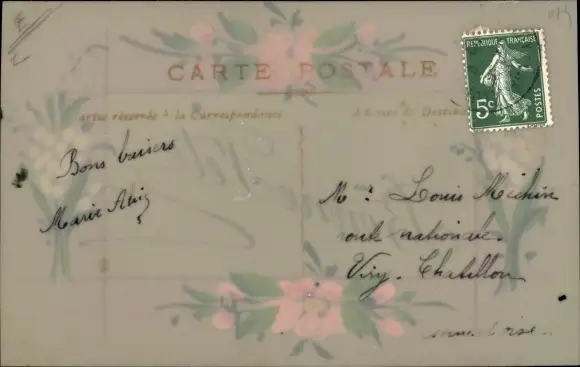 CARTE POSTALE
Partie réservée à la Correspondance
Adresse du Destina
REPUBLIQUE FRANÇAISE
5c
POSTES
Bons baisers
Marie
Mr Louis Michin
route nationale
Viry-Chatillon
Seine & Oise